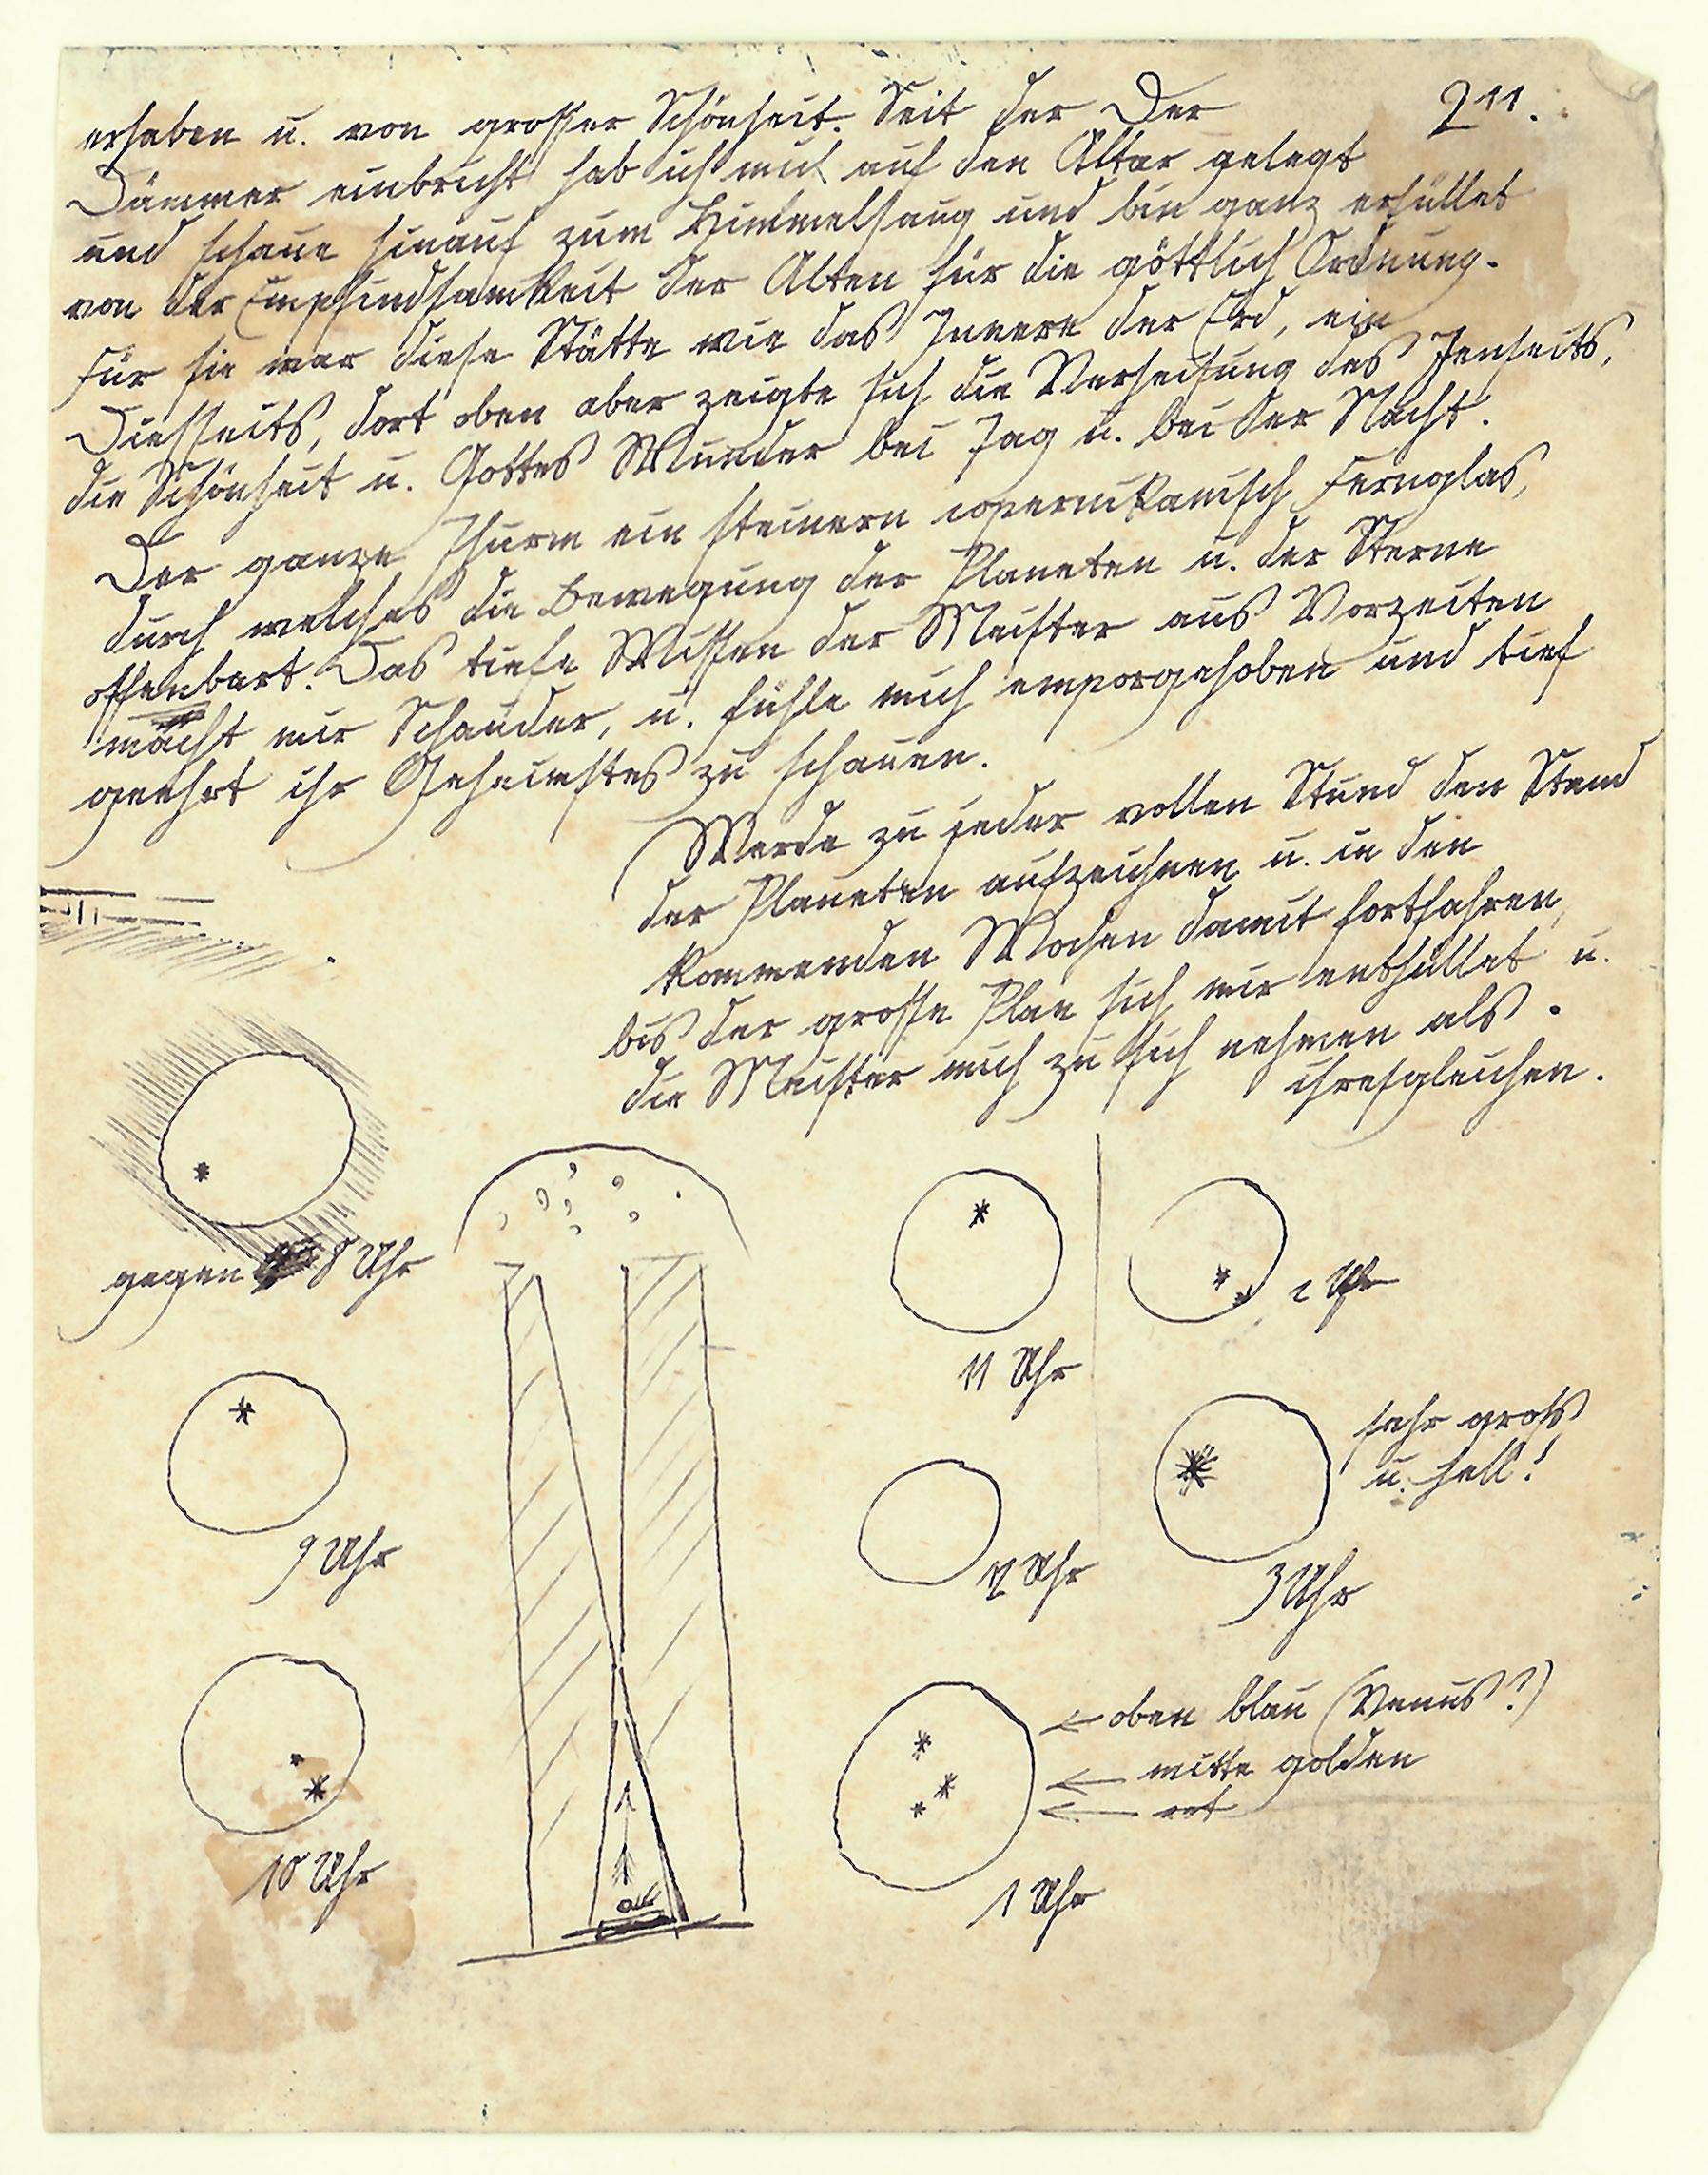 211.
erhaben u. von grosser Schönheit. Seit der Der
Dämmer einbricht hab ich mich auf den Altar gelegt
und schaue hinauf zum Himmelsaug und bin ganz erfüllet
von der Empfindsamkeit der Alten für die göttlich Ordnung.
Für sie war diese Stätte wie das Innere der Erd, ein
Diesseits, dort oben aber zeigte sich die Verheisung des Jenseits,
die Schönheit u. Gottes Wunder bei Tag u. bei der Nacht.
Der ganze Thurm ein steinern copernikanisch Fernglas,
durch welches die Bewegung der Planeten u. der Sterne
offenbart. Das tiefe Wissen der Meister aus Vorzeiten
macht mir Schauder, u. fühle mich emporgehoben und tief
geehrt ihr Geheimstes zu schauen.
Werde zu jeder vollen Stund den Stand
der Planeten aufzeichnen u. in den
kommenden Wochen damit fortfahren,
bis der grosse Plan sich mir enthüllet u.
die Meister mich zu sich nehmen als
ihresgleichen.
gegen 8 Uhr
9 Uhr
10 Uhr
11 Uhr
12 Uhr
1 Uhr
oben blau (Venus?)
mitte golden
rot
2 Uhr
sehr gross
u. hell!
3 Uhr